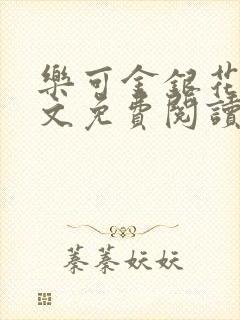 樂可金銀花
文免費閱讀
蓁蓁妖妖